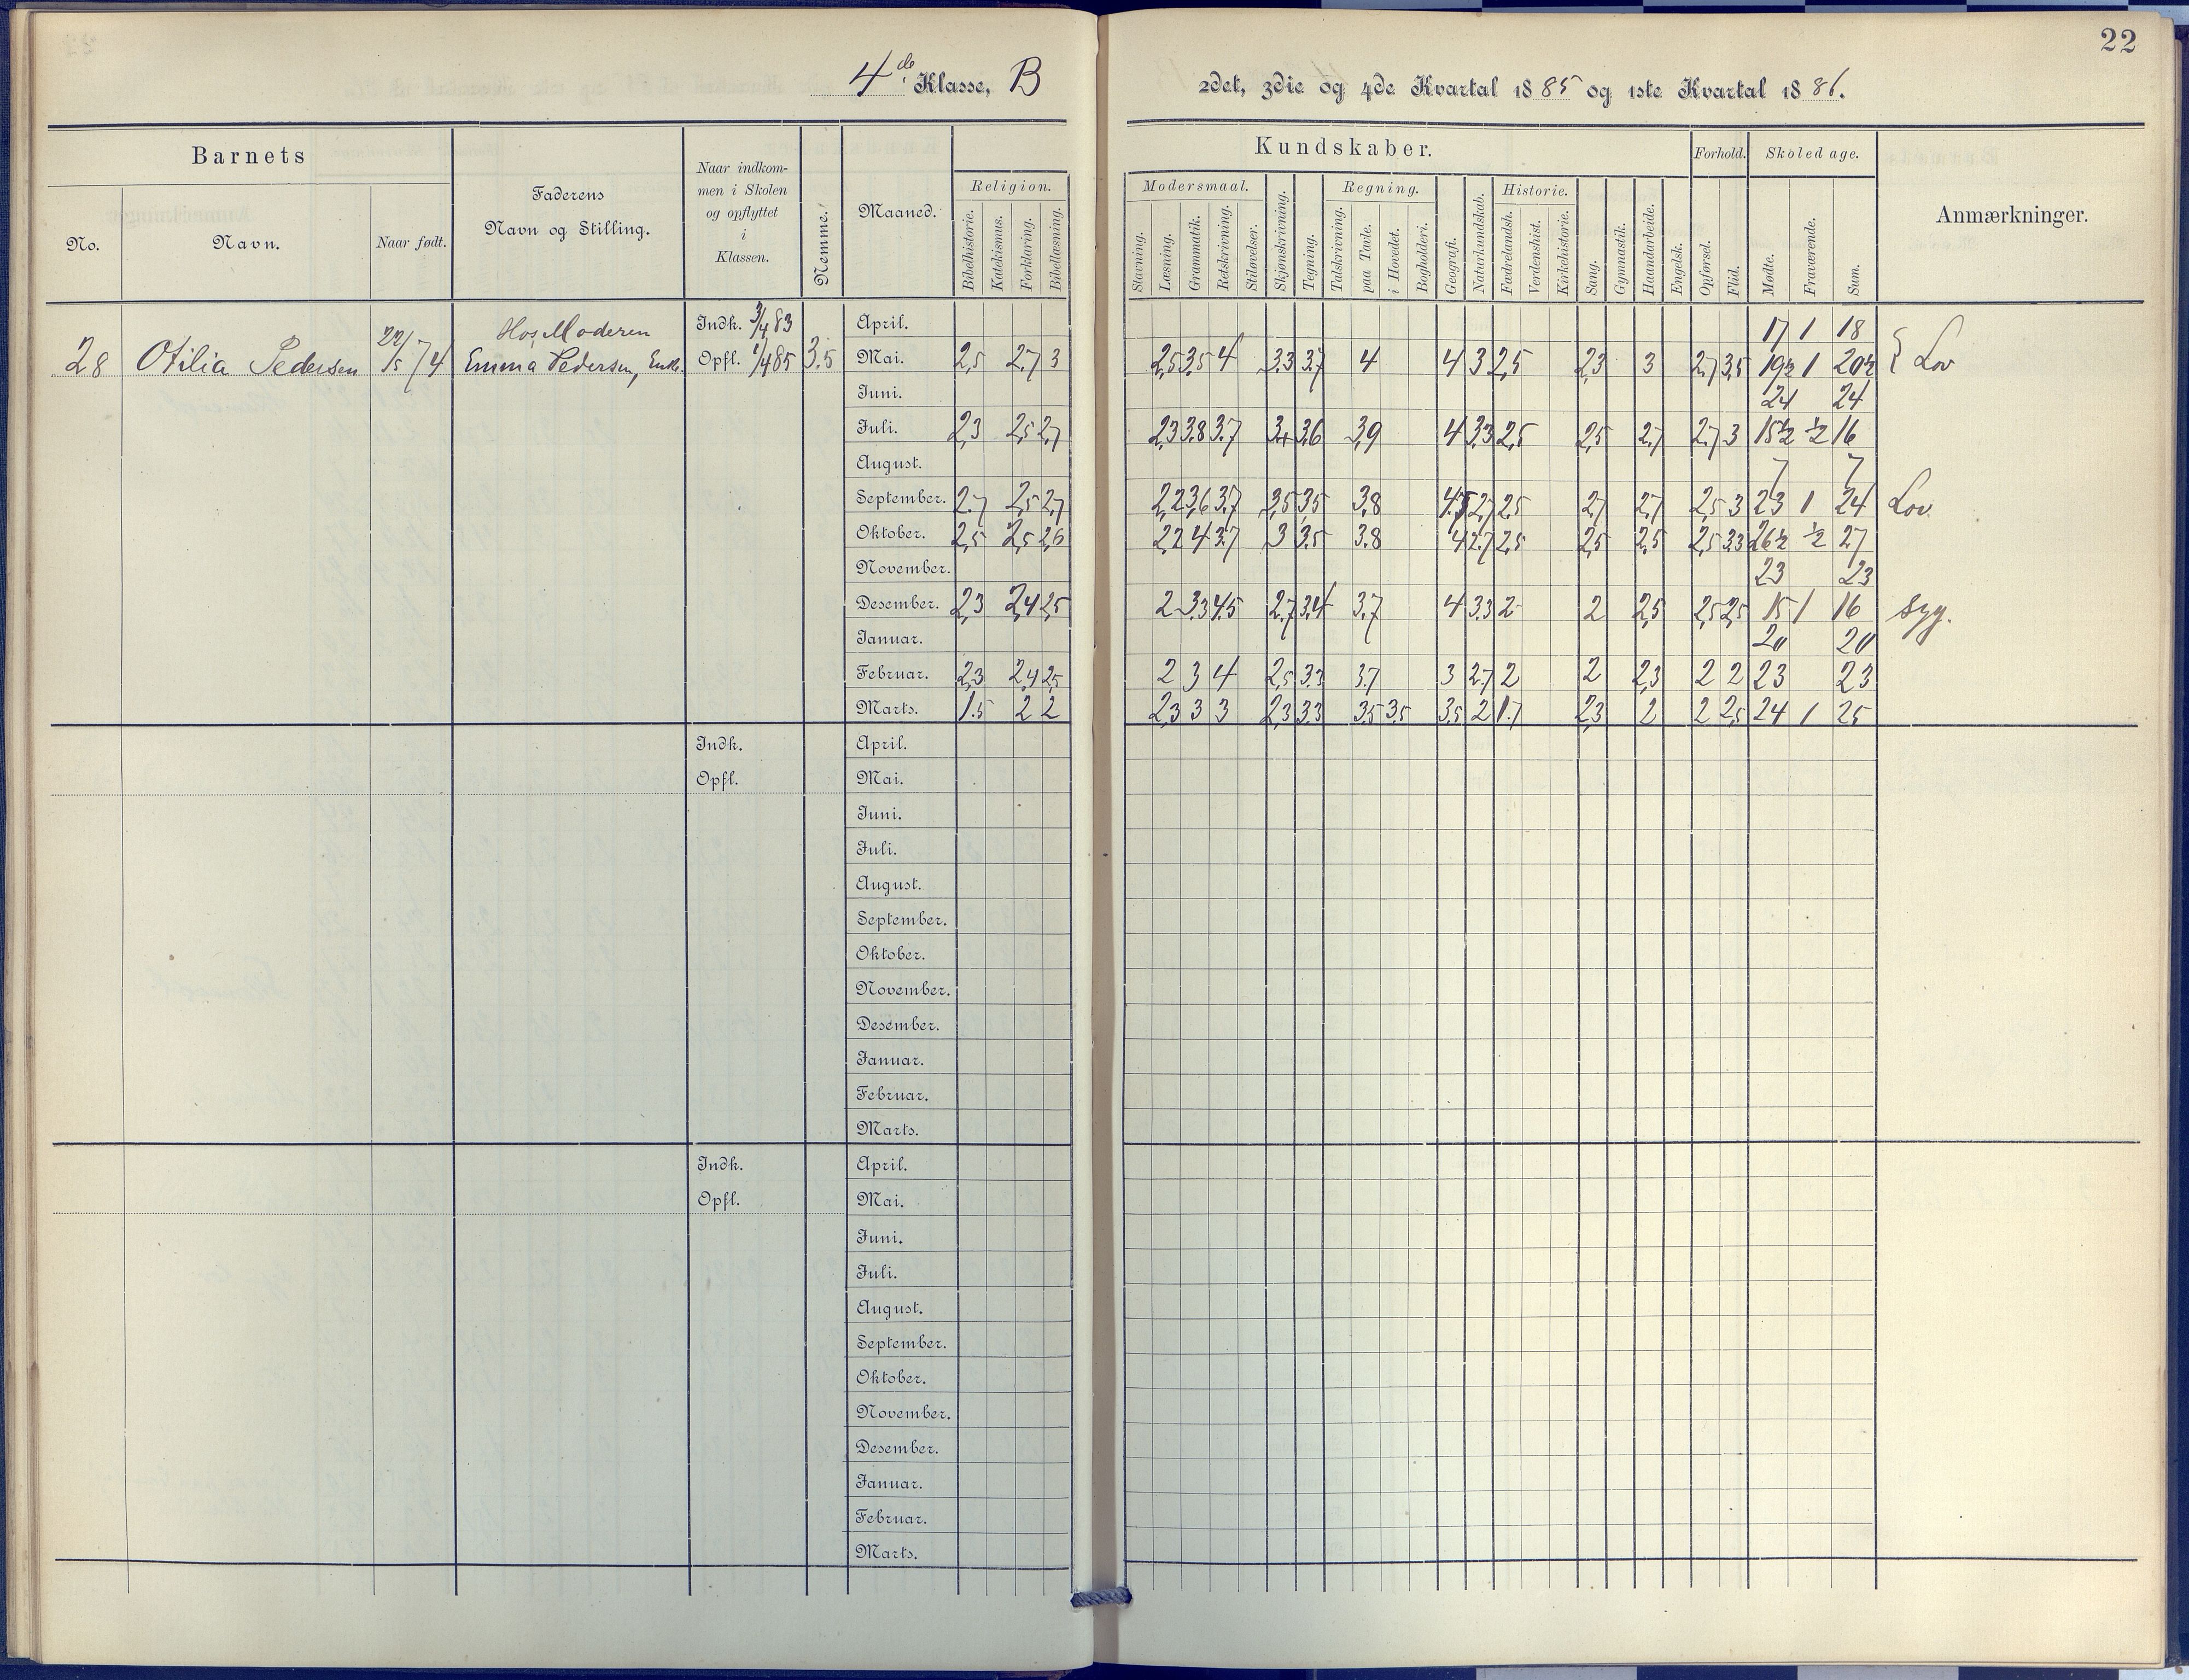 22
4de Klasse, B
2det, 3die og 4de Kvartal 1885 og 1ste Kvartal 1886.
Barnets
No.
Navn.
Naar født.
Faderens
Navn og Stilling.
Naar indkom-
men i Skolen
og opflyttet
i
Klassen.
Nemme.
Maaned.
Kundskaber.
Religion.
Bibelhistorie.
Katekismus.
Forklaring.
Bibellæsning.
Modersmaal.
Stavning.
Læsning.
Grammatik.
Retskrivning.
Stiløvelser.
Skjønskrivning.
Tegning.
Regning.
Talskrivning.
paa Tavle.
i Hovedet.
Bogholderi.
Geografi.
Naturkundskab.
Historie.
Fædrelandsh.
Verdenshist.
Kirkehistorie.
Sang.
Gymnastik.
Haandarbeide.
Engelsk.
Forhold.
Opførsel.
Flid.
Skoledage.
Mødte.
Fraværende.
Sum.
Anmærkninger.
28 Otilia Pedersen 22/5 74
Hos Moderen
Emma Pedersen, Enke.
Indk. 3/4 83
Opfl. 1/4 85 3.5
April. 17 1 18
Mai. 2,5 2,7 3 2,5 3,5 4 3.3 3,7 4 4 3 2,5 2,3 3 2,7 3,5 19½ 1 20½ Lov
Juni. 24 24
Juli. 2,3 2,5 2,7 2,3 3,8 3,7 3,4 3,6 3,9 4 3,3 2,5 2,5 2,7 2,7 3 15½ ½ 16
August. 7 7
September. 2,7 2,5 2,7 2,2 3,6 3,7 3,5 3,5 3,8 2,7 2,5 2,7 2,7 2,5 3 23 1 24 Lov.
Oktober. 2,5 2,5 2,6 2,2 4 3,7 3 3,5 3.8 4 2,7 2,5 2,5 2,5 2,5 3,3 26½ ½ 27
November. 23 23
Desember. 2,3 2,4 2,5 2 3.3 4.5 2,7 3,4 3,7 4 3.3 2 2 2,5 2,5 2,5 15 1 16 Syg.
Januar. 20 20
Februar. 2,3 2,4 2,5 2 3 4 2,5 3,3 3,7 3 2,7 2 2 2,3 2 2 23 23
Marts. 1.5 2 2 2,3 3 3 2,3 3,3 3,5 3,5 3,5 2 1.7 2,3 2 2 2,5 24 1 25
Indk.
Opfl.
April.
Mai.
Juni.
Juli.
August.
September.
Oktober.
November.
Desember.
Januar.
Februar.
Marts.
Indk.
Opfl.
April.
Mai.
Juni.
Juli.
August.
September.
Oktober.
November.
Desember.
Januar.
Februar.
Marts.